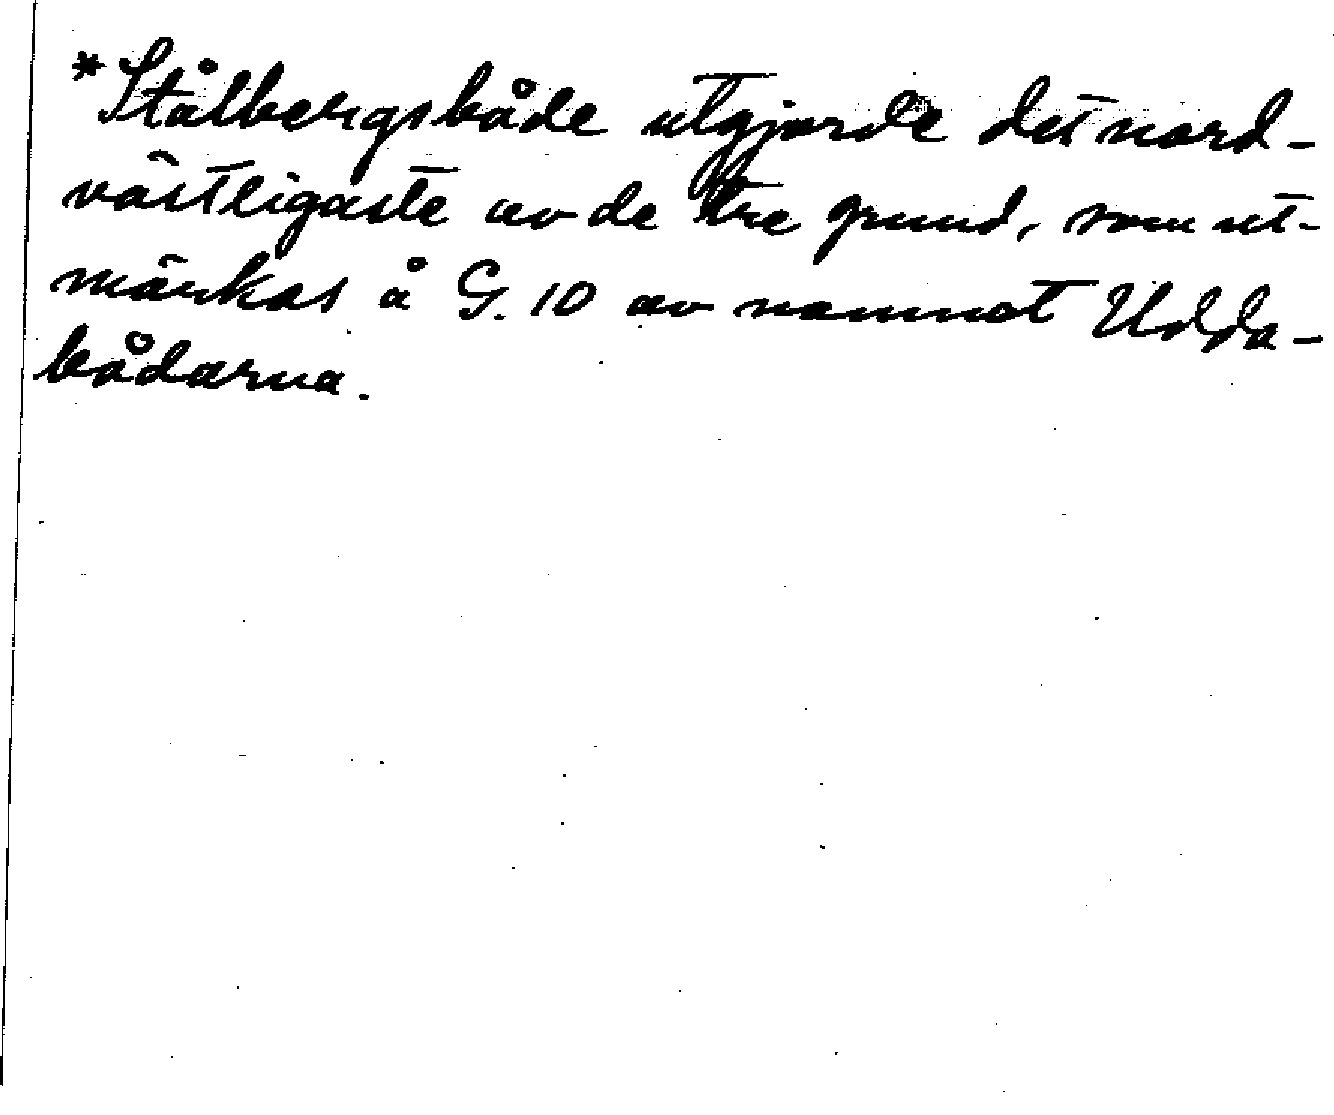 *Stålbergsbåde utgjorde det nord-
västligaste av de tre grund, som ut-
märkas å G. 10 av namnet Udda-
bådarna.